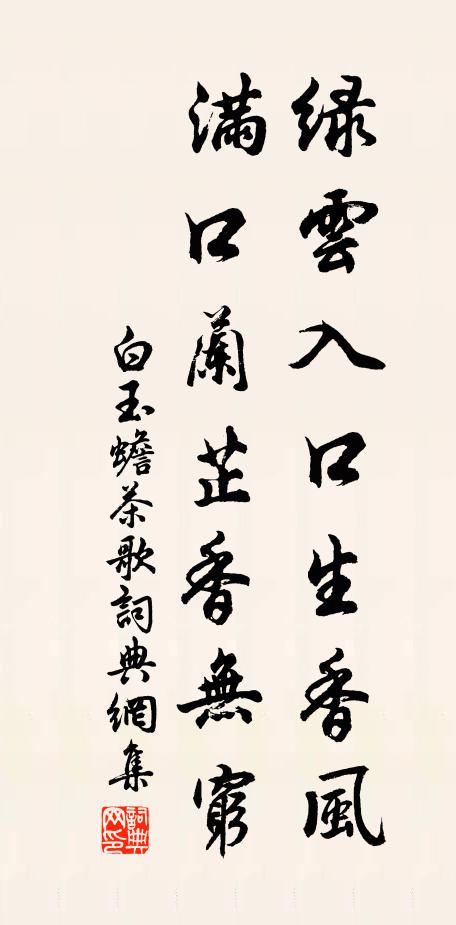 绿雲入口生香風
滿口蘭芷香無窮
白玉蟾茶歌詞典網集
詞典
网印